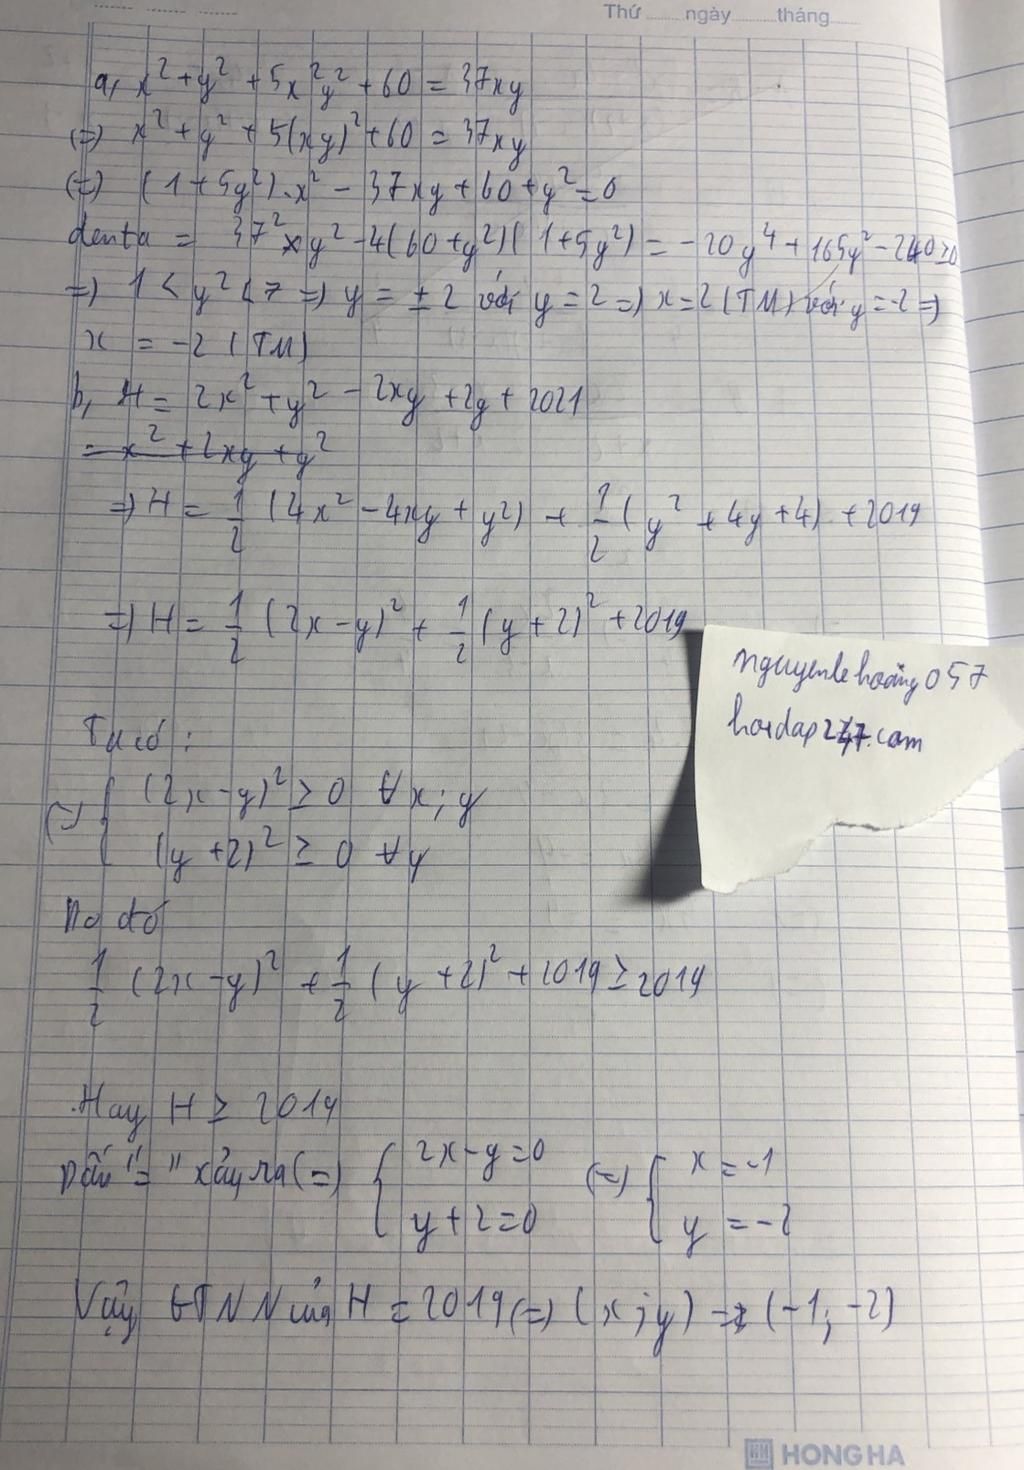 Thứ ngày tháng
a, x² + y² + 5x²y² + 60 = 37xy
(=) x² + y² + 5(xy)² + 60 = 37xy
(=) (1 + 5y²).x² - 37xy + 60 + y² = 0
denta = 37² xy² - 4(60 + y²)(1 + 5y²) = -20y⁴ + 165y² - 240 ≥ 0
=) 1 < y² < 7 =) y = ± 2 với y = 2 =) x = 2 (TM) với y = -2 =)
x = -2 (TM)
b, H = 2x² + y² - 2xy + 2y + 2021
= x² + 2xy + y²
=) H = 1/2 (4x² - 4xy + y²) + 1/2 (y² + 4y + 4) + 2019
=) H = 1/2 (2x - y)² + 1/2 (y + 2)² + 2019
nguyenlehoang057
hoidap247.com
Ta có :
(=) { (2x - y)² ≥ 0 ∀x; y
(y + 2)² ≥ 0 ∀y
Do đó
1/2 (2x - y)² + 1/2 (y + 2)² + 2019 ≥ 2019
Hay H ≥ 2019
Dấu "=" xảy ra (=) { 2x - y = 0 (=) { x = -1
y + 2 = 0 y = -2
Vậy GTNN của H = 2019 (=) (x; y) = (-1; -2)
HONG HA